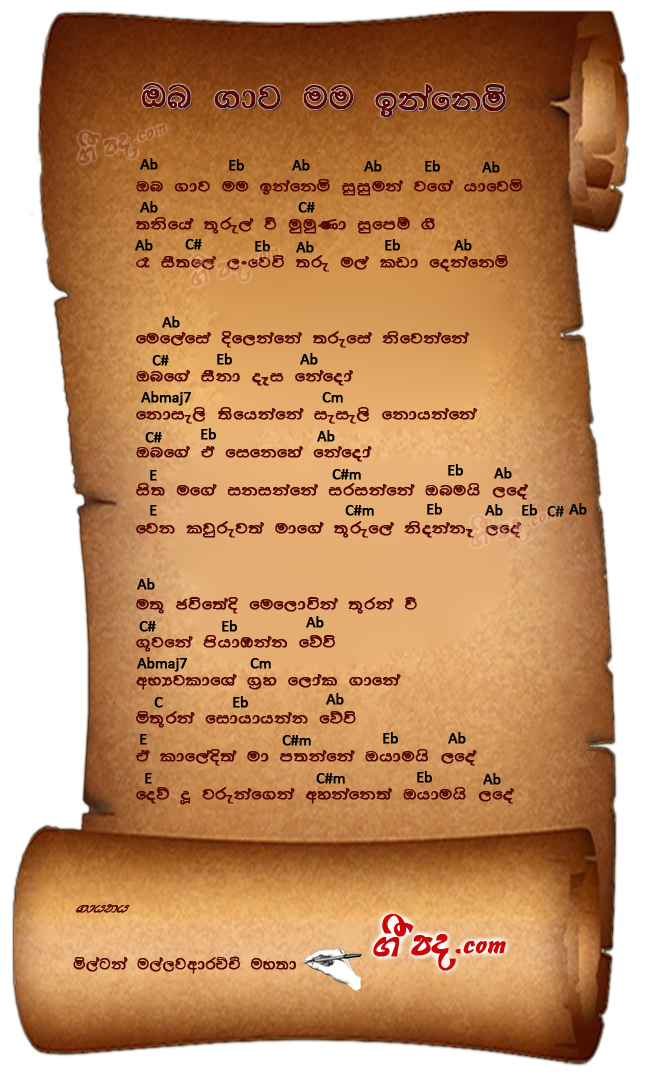 ඔබ ගාව මම ඉන්නෙමි
ගී පද.com
Ab Eb Ab Ab Eb Ab
ඔබ ගාව මම ඉන්නෙමි සුසුමන් වගේ යාවෙමි
Ab C#
තනියේ තුරුල් වී මුමුණා සුපෙම් ගී
Ab C# Eb Ab Eb Ab
රෑ සීතලේ ලංවෙවී තරු මල් කඩා දෙන්නෙමි
Ab
මෙලේසේ දිලෙන්නේ තරුසේ නිවෙන්නේ
C# Eb Ab
ඔබගේ සිනා දෑස නේදෝ
Abmaj7 Cm
නොසැලී තියෙන්නේ සැසැලී නොයන්නේ
C# Eb Ab
ඔබගේ ඒ සෙනෙහේ නේදෝ
E C#m Eb Ab
සිත මගේ සනසන්නේ සරසන්නේ ඔබමයි ලඳේ
E C#m Eb Ab Eb C# Ab
වෙන කවුරුවත් මාගේ තුරුලේ නිදන්නෑ ලඳේ
Ab
මතු ජවිතේදි මෙලොවින් තුරන් වී
C# Eb Ab
ගුවනේ පියාඹන්න වේවි
Abmaj7 Cm
අභ්‍යවකාශේ ග්‍රහ ලෝක ගානේ
C Eb Ab
මිතුරන් සොයායන්න වේවි
E C#m Eb Ab
ඒ කාලේදිත් මා පතන්නේ ඔයාමයි ලඳේ
E C#m Eb Ab
දෙවි දූ වරුන්ගෙන් අහන්නෙත් ඔයාමයි ලඳේ
ගායනය
ගී පද.com
මිල්ටන් මල්ලවආරච්චි මහතා